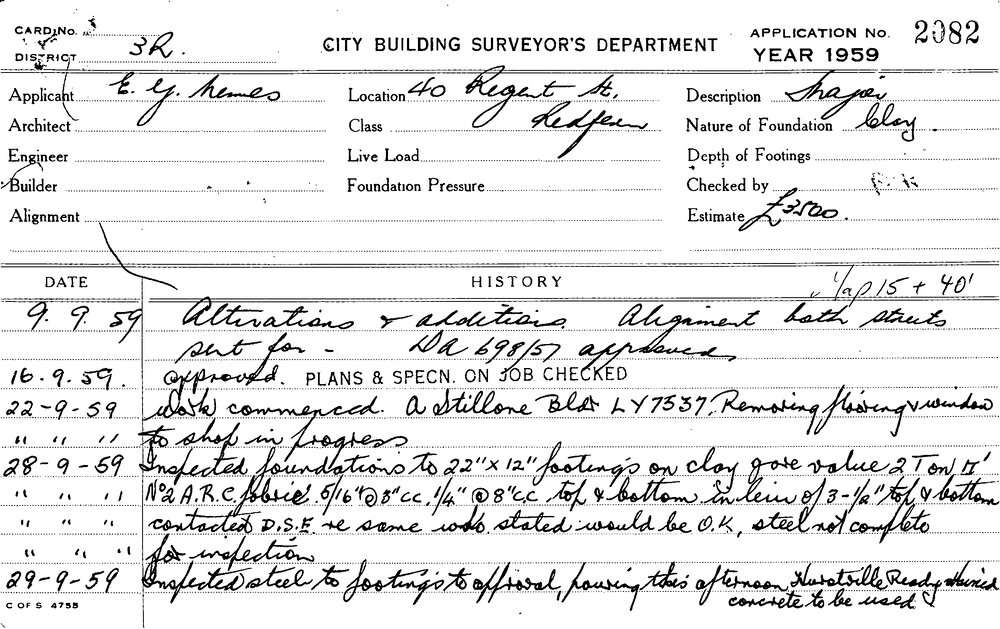 CARD No. 3
DISTRICT 3R.
CITY BUILDING SURVEYOR'S DEPARTMENT
APPLICATION No. 2082
YEAR 1959
Applicant E. G. Nemes
Location 40 Regent St.
Redfern
Description Shajai
Architect
Class
Nature of Foundation Clay.
Engineer
Live Load
Depth of Footings
Builder
Foundation Pressure
Checked by
Alignment
Estimate £3500.
DATE
HISTORY
15 + 40'
9. 9. 59 Alterations & additions. Alignment both streets
sent for - DA 698/57 approved
16.9.59. approved. PLANS & SPECN. ON JOB CHECKED
22-9-59 work commenced. A Stillone Bldr LY7537. Removing flooring & window
" " " to shop in progress
28-9-59 Inspected foundations to 22"x12" footings on clay gave value 2 Ton □'
" " " No2 A.R.C. fabric 5/16"@3"cc. 1/4"@8"C.C. top & bottom in leiu of 3-1/2" top & bottom
" " " contacted D.S.E. re same who stated would be O.K, steel not complete
" " " for inspection
29-9-59 Inspected steel to footings to approval, pouring this afternoon, Hurstville Ready Mixed
concrete to be used
C OF S 475B